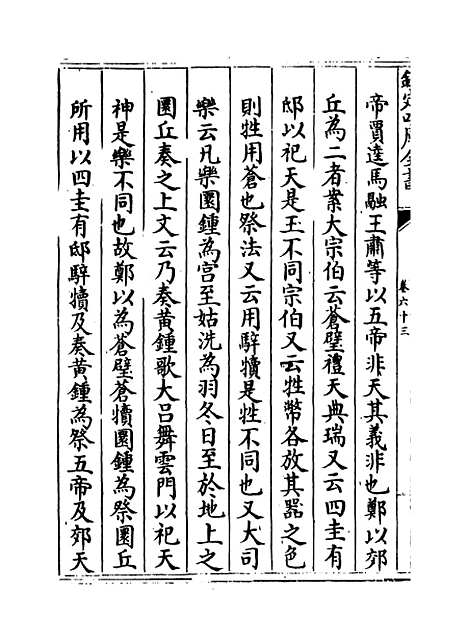 欽定四庫全書
卷六十三
帝賈逵馬融王肅等以五帝非天其義非也鄭以郊
丘為二者案大宗伯云蒼璧禮天典瑞又云四圭有
邸以祀天是玉不同宗伯又云牲幣各放其器之色
則牲用蒼也祭法又云用騂犢是牲不同也又大司
樂云凡樂圜鍾為宮至姑洗為羽冬日至於地上之
圜丘奏之上文云乃奏黃鍾歌大呂舞雲門以祀天
神是樂不同也故鄭以為蒼璧蒼犢圜鍾為祭圜丘
所用以四圭有邸騂犢及奏黃鍾為祭五帝及郊天